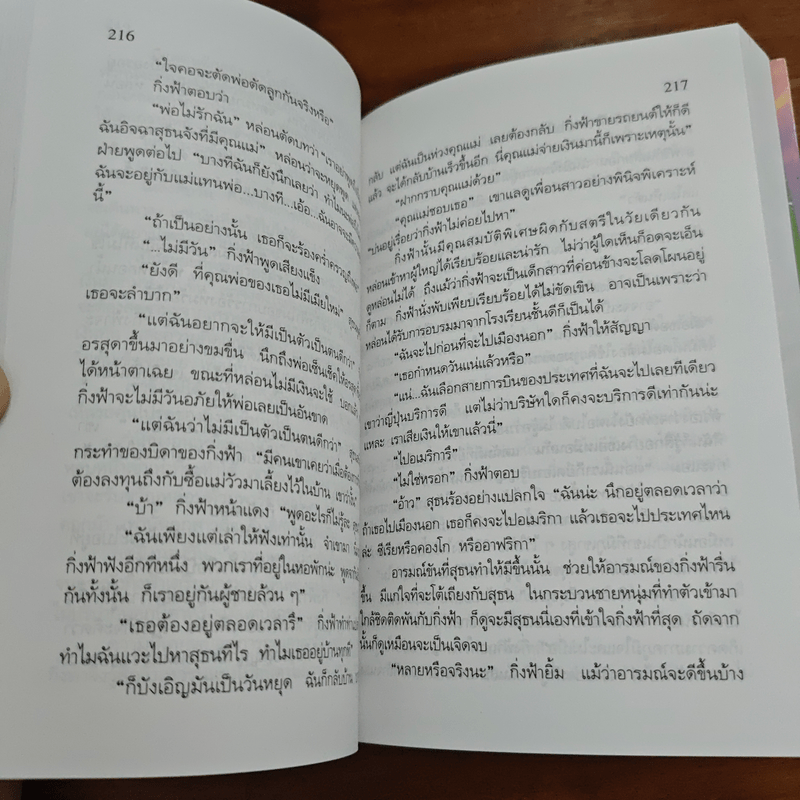 216
“ใจคอจะตัดพ่อตัดลูกกันจริงหรือ”
กิ่งฟ้าตอบว่า
“พ่อไม่รักฉัน” หล่อนตัดบทว่า
ฉันอิจฉาสุธนจังที่มีคุณแม่” หล่อนว่าจะหยุดพูด
ฝ่ายพูดต่อไป “บางทีฉันก็ยังนึกเลยว่า
ฉันจะอยู่กับแม่แทนพ่อ...บางที...เอ้อ...ฉันอาจจะ
นี้”
“ถ้าเป็นอย่างนั้น เธอก็จะร้องคร่ำครวญ
“...ไม่มีวัน” กิ่งฟ้าพูดเสียงแข็ง
“ยังดี ที่คุณพ่อของเธอไม่มีเมียใหม่”
เธอจะลำบาก”
“แต่ฉันอยากจะให้มีเป็นตัวเป็นตนดีกว่า”
อรสุดาขึ้นมาอย่างขมขื่น นึกถึงพ่อเซ็นเช็คให้
ได้หน้าตาเฉย ขณะที่หล่อนไม่มีเงินจะใช้
กิ่งฟ้าจะไม่มีวันอภัยให้พ่อเลยเป็นอันขาด
“แต่ฉันว่าไม่มีเป็นตัวเป็นตนดีกว่า”
กระทำของบิดาของกิ่งฟ้า “มีคนเขาเคยว่า
ต้องลงทุนถึงกับซื้อแม่วัวมาเลี้ยงไว้ในบ้าน
“บ้า” กิ่งฟ้าหน้าแดง “พูดอะไรก็ไม่รู้
“ฉันเพียงแต่เล่าให้ฟังเท่านั้น จำเขามา
กิ่งฟ้าฟังอีกทีหนึ่ง พวกเราที่อยู่ในหอพักน่ะ
กันทั้งนั้น ก็เราอยู่กันผู้ชายล้วน ๆ”
“เธอต้องอยู่ตลอดเวลารึ”
ทำไมฉันแวะไปหาสุธนทีไร ทำไมเธออยู่บ้านทุกที”
“ก็บังเอิญมันเป็นวันหยุด ฉันก็กลับบ้าน
217
กลับ แต่ฉันเป็นห่วงคุณแม่ เลยต้องกลับ กิ่งฟ้าขายรถยนต์ให้ก็ดี
แล้ว จะได้กลับบ้านเร็วขึ้นอีก นี่คุณแม่จ่ายเงินมานี้ก็เพราะเหตุนั้น”
“ฝากกราบคุณแม่ด้วย”
“คุณแม่ชอบเธอ” เขาแลดูเพื่อนสาวอย่างพินิจพิเคราะห์
“บ่นอยู่เรื่อยว่ากิ่งฟ้าไม่ค่อยไปหา”
กิ่งฟ้านั้นมีคุณสมบัติพิเศษผิดกับสตรีในวัยเดียวกัน
หล่อนเข้าหาผู้ใหญ่ได้เรียบร้อยและน่ารัก ไม่ว่าผู้ใดเห็นก็อดจะเอ็น
ดูหล่อนไม่ได้ ถึงแม้ว่ากิ่งฟ้าจะเป็นเด็กสาวที่ค่อนข้างจะโลดโผนอยู่
ก็ตาม กิ่งฟ้านั่งพับเพียบเรียบร้อยได้ไม่ขัดเขิน อาจเป็นเพราะว่า
หล่อนได้รับการอบรมมาจากโรงเรียนชั้นดีก็เป็นได้
“ฉันจะไปก่อนที่จะไปเมืองนอก” กิ่งฟ้าให้สัญญา
“เธอกำหนดวันแน่แล้วหรือ”
“แน่...ฉันเลือกสายการบินของประเทศที่ฉันจะไปเลยทีเดียว
เขาว่าญี่ปุ่นบริการดี แต่ไม่ว่าบริษัทใดก็คงจะบริการดีเท่ากันน่ะ
แหละ เราเสียเงินให้เขาแล้วนี่”
“ไปอเมริการึ”
“ไม่ใช่หรอก” กิ่งฟ้าตอบ
“อ้าว” สุธนร้องอย่างแปลกใจ “ฉันน่ะ นึกอยู่ตลอดเวลาว่า
ถ้าเธอไปเมืองนอก เธอก็คงจะไปอเมริกา แล้วเธอจะไปประเทศไหน
ล่ะ ซีเรียหรือคองโก หรืออาฟริกา”
อารมณ์ขันที่สุธนทำให้มีขึ้นนั้น ช่วยให้อารมณ์ของกิ่งฟ้ารื่น
ขึ้น มีแก่ใจที่จะโต้เถียงกับสุธน ในกระบวนชายหนุ่มที่ทำตัวเข้ามา
ใกล้ชิดติดพันกับกิ่งฟ้า ก็ดูจะมีสุธนนี่เองที่เข้าใจกิ่งฟ้าที่สุด ถัดจาก
นั้นก็ดูเหมือนจะเป็นเจิดจบ
“หลายหรือจริงนะ” กิ่งฟ้ายิ้ม แม้ว่าอารมณ์จะดีขึ้นบ้าง